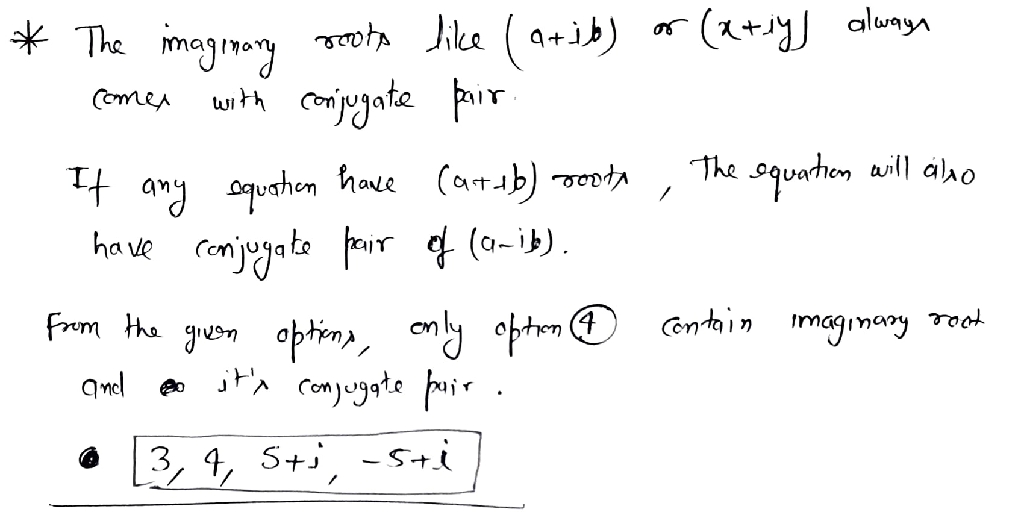 * The imaginary roots like (a+ib) or (x+iy) always
comes with conjugate pair.
If any equation have (a+ib) roots, The equation will also
have conjugate pair of (a-ib).
From the given options, only option ④ contain imaginary root
and it's conjugate pair.
3, 4, 5+i, -5+i